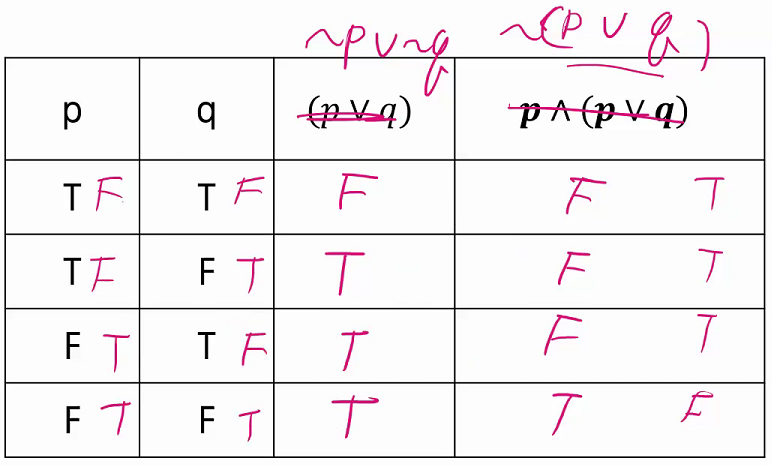 ~p ∨ ~q ~(p ∨ q)
p q (p ∨ q) p ∧ (p ∨ q)
T F T F F F T
T F F T T F T
F T T F T F T
F T F T T T F